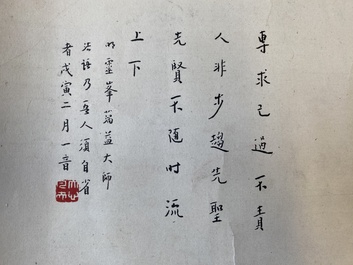 專求己過不責
人非步趨先聖
先賢不随时流
上下
明靈峯蕅益大師
法語乃吾人須自省
者戊寅二月一音